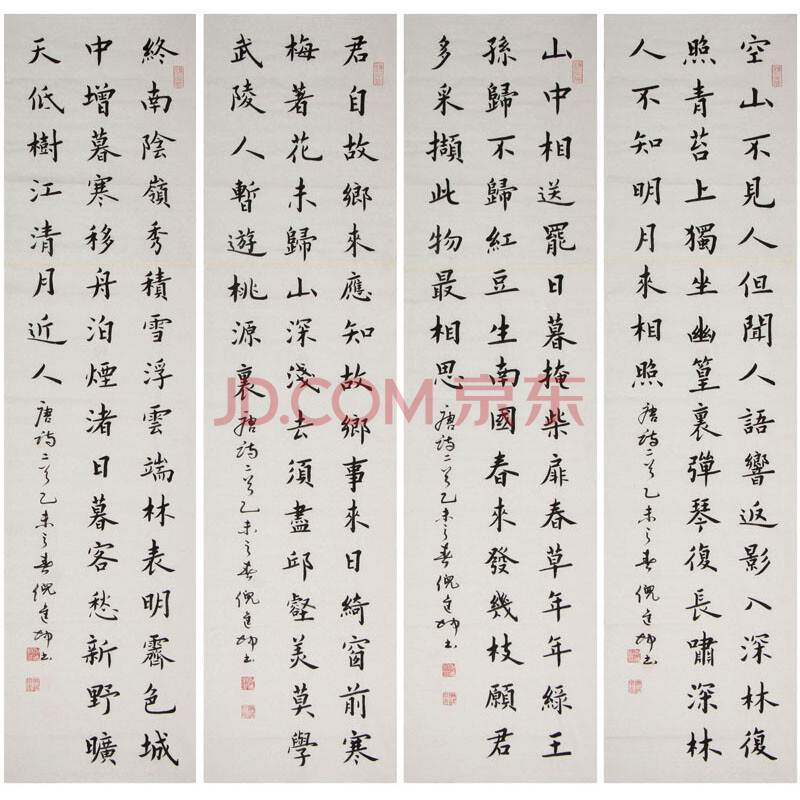 空山不見人但聞人語響返影入深林復
照青苔上獨坐幽篁裏彈琴復長嘯深林
人不知明月來相照 唐詩二首乙未之春倪
山中相送罷日暮掩柴扉春草年年綠王
孫歸不歸紅豆生南國春來發幾枝願君
多采擷此物最相思 唐詩二首乙未之春倪
君自故鄉來應知故鄉事來日綺窗前寒
梅著花未歸山深淺去須盡邱壑美莫學
武陵人暫遊桃源裏 唐詩二首乙未之春倪
終南陰嶺秀積雪浮雲端林表明霽色城
中增暮寒移舟泊煙渚日暮客愁新野曠
天低樹江清月近人 唐詩二首乙未之春倪
JD.COM 京东